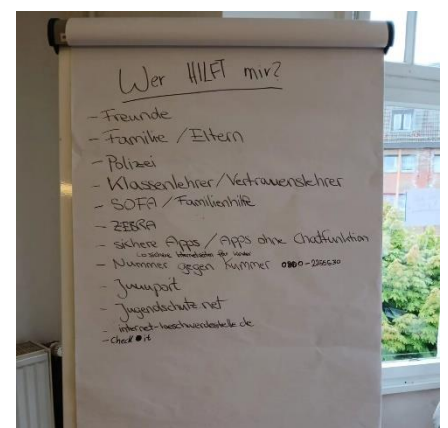 Wer HILFT mir?
- Freunde
- Familie / Eltern
- Polizei
- Klassenlehrer / Vertrauenslehrer
- SOFA / Familienhilfe
- ZEBRA
- sichere Apps / Apps ohne Chatfunktion
sichere Internetseiten für Kinder
- Nummer gegen Kummer
- Juuuport
- Jugendschutz.net
- internet-beschwerdestelle.de
- Check it